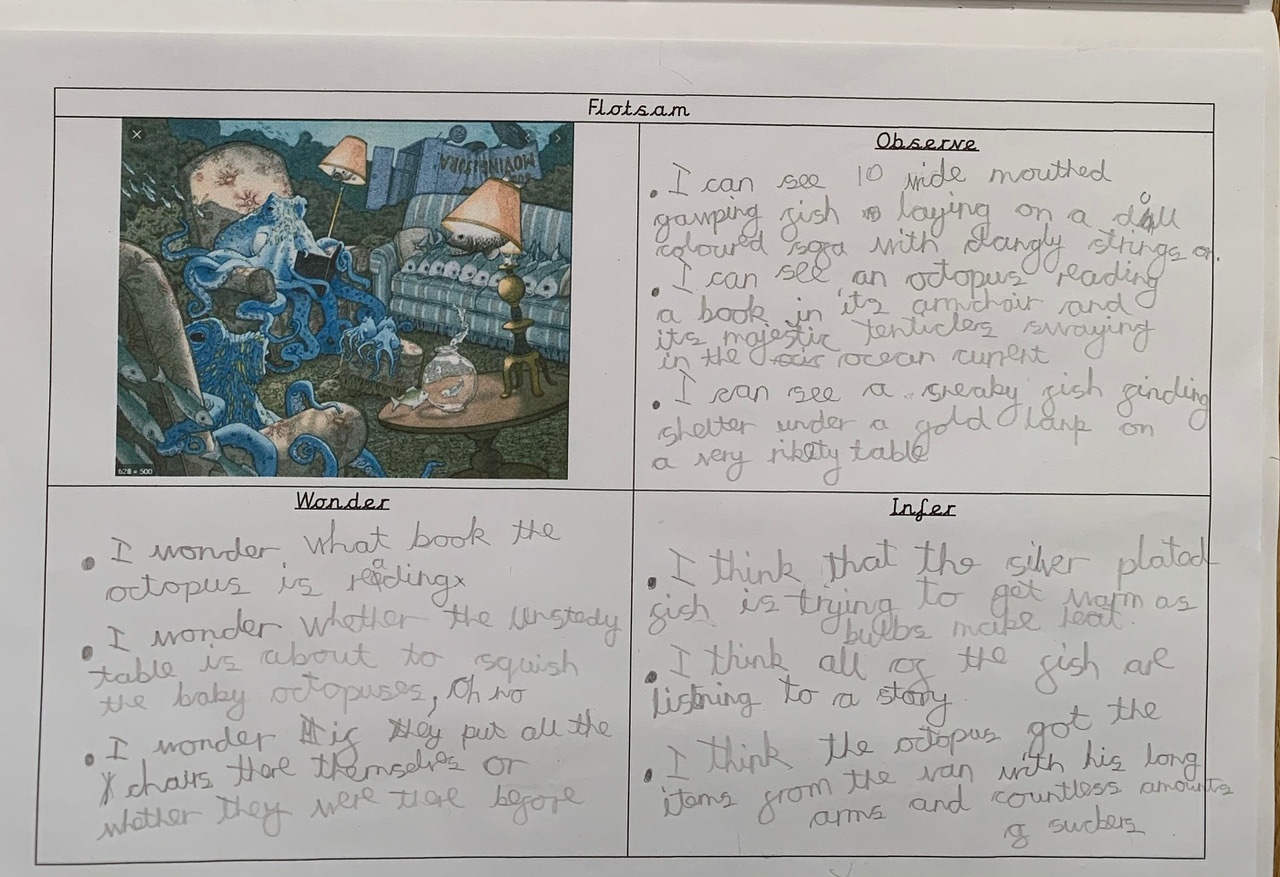 Flotsam
MOVING & STORA
628 × 500
Observe
. I can see 10 wide mouthed
gawping fish laying on a dull
coloured sofa with dangly strings on.
. I can see an octopus reading
a book in its armchair and
its majestic tenticles swaying
in the ocean current
. I can see a sneaky fish finding
shelter under a gold lamp on
a very rikety table
Wonder
• I wonder what book the
octopus is reading
• I wonder whether the unstedy
table is about to squish
the baby octopuses, Oh no
• I wonder if they put all the
chairs there themselves or
whether they were there before
Infer
• I think that the silver plated
fish is trying to get warm as
bulbs make heat.
• I think all of the fish are
listning to a story
• I think the octopus got the
items from the van with his long
arms and countless amounts
of suckers